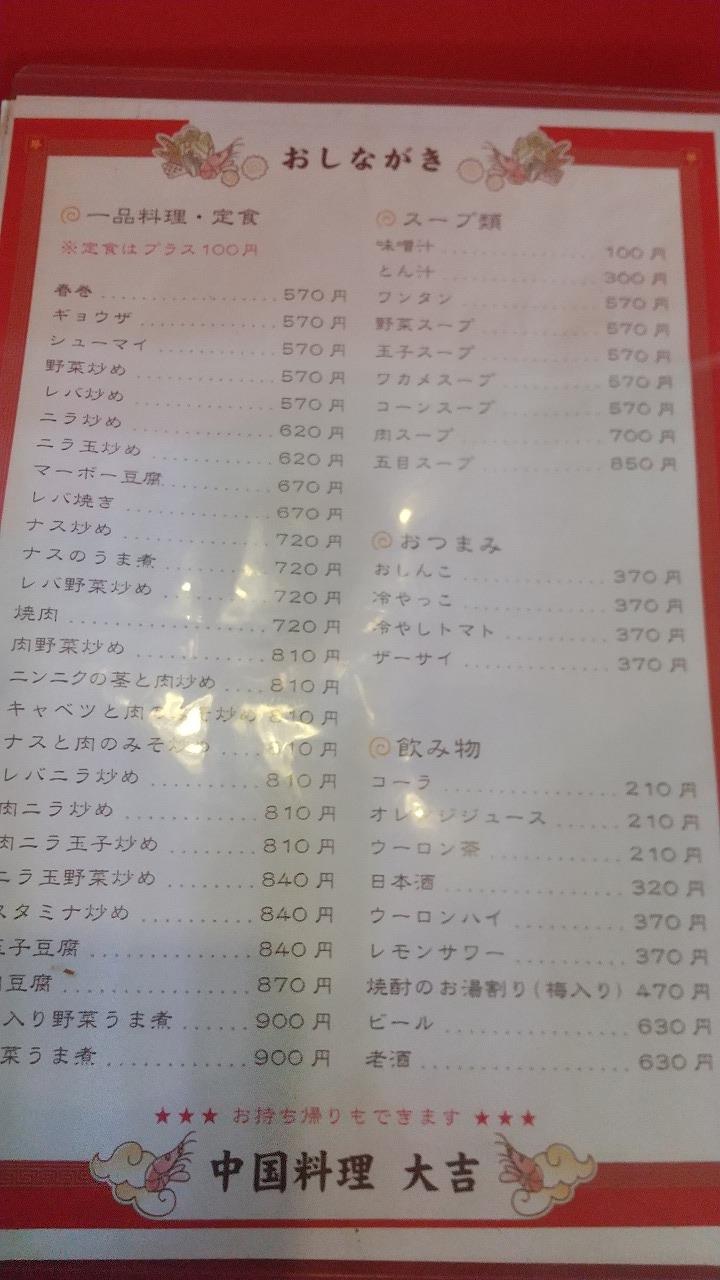 おしながき
一品料理・定食
※定食はプラス100円
春巻 570円
ギョウザ 570円
シューマイ 570円
野菜炒め 570円
レバ炒め 570円
ニラ炒め 620円
ニラ玉炒め 620円
マーボー豆腐 670円
レバ焼き 670円
ナス炒め 720円
ナスのうま煮 720円
レバ野菜炒め 720円
焼肉 720円
肉野菜炒め 810円
ニンニクの茎と肉炒め 810円
キャベツと肉のみそ炒め 810円
ナスと肉のみそ炒め 810円
レバニラ炒め 810円
肉ニラ炒め 810円
肉ニラ玉子炒め 810円
ニラ玉野菜炒め 840円
スタミナ炒め 840円
玉子豆腐 840円
豆腐 870円
入り野菜うま煮 900円
菜うま煮 900円
スープ類
味噌汁 100円
とん汁 300円
ワンタン 570円
野菜スープ 570円
玉子スープ 570円
ワカメスープ 570円
コーンスープ 570円
肉スープ 700円
五目スープ 850円
おつまみ
おしんこ 370円
冷やっこ 370円
冷やしトマト 370円
ザーサイ 370円
飲み物
コーラ 210円
オレンジジュース 210円
ウーロン茶 210円
日本酒 320円
ウーロンハイ 370円
レモンサワー 370円
焼酎のお湯割り(梅入り) 470円
ビール 630円
老酒 630円
★★★ お持ち帰りもできます ★★★
中国料理 大吉